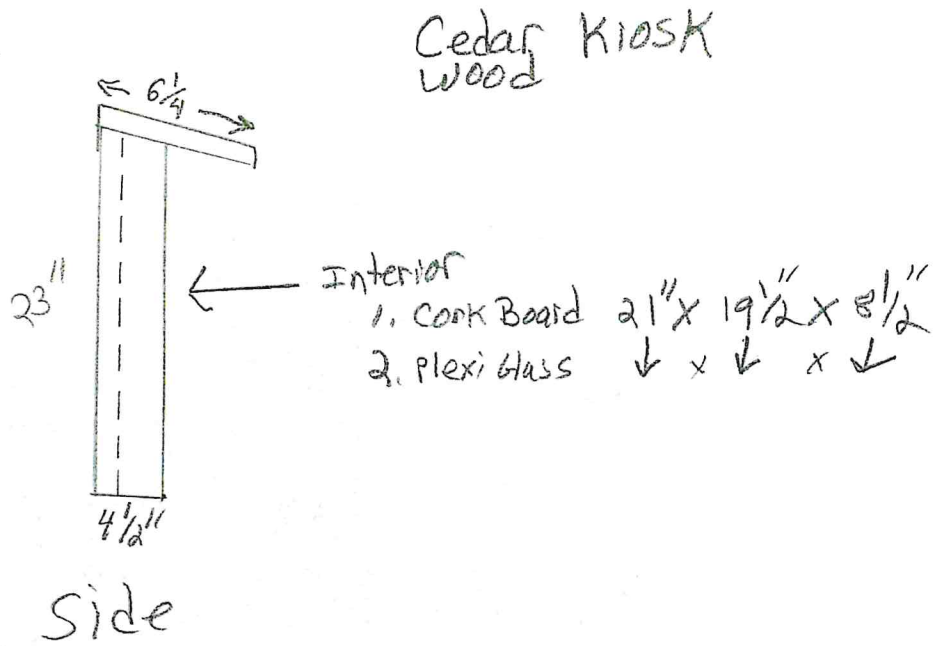 Cedar Kiosk
wood
← 6 1/4 →
23"
← Interior
1. Cork Board 21" X 19 1/2" X 8 1/2"
2. Plexi Glass ↓ x ↓ x ↓
4 1/2"
Side